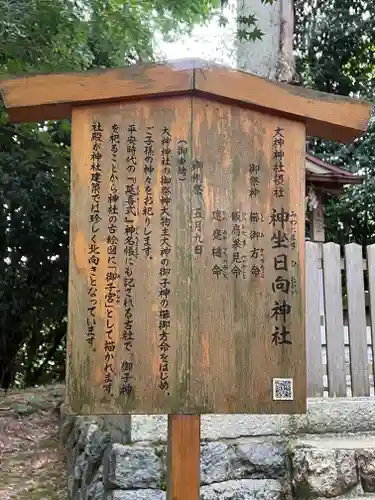 大神神社摂社
神坐日向神社
みわにますひむかいじんじゃ
御祭神
櫛御方命
飯肩巣見命
建甕槌命
御例祭 五月九日
(御由緒)
大神神社の御祭神大物主大神の御子神の櫛御方命をはじめ、
ご子孫の神々をお祀りします。
平安時代の『延喜式』神名帳にも記される古社で、御子神
を祀ることから神社の古絵図に「御子宮」として描かれます。
社殿が神社建築では珍しく北向きとなっています。